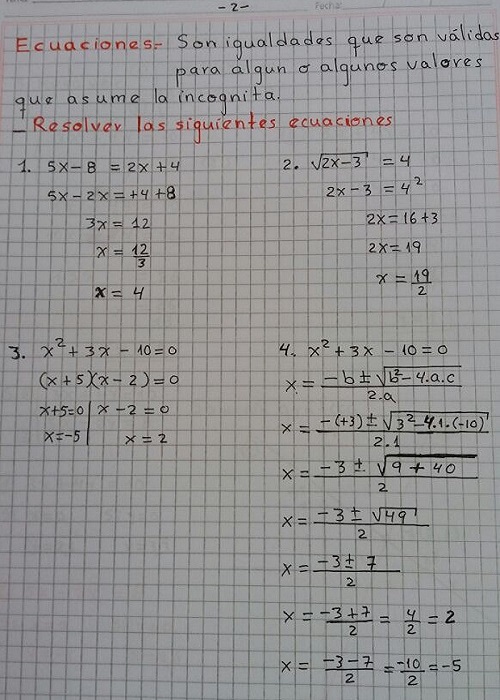 -2-
Fecha:
Ecuaciones.- Son igualdades que son válidas
para algun o algunos valores
que asume la incognita.
- Resolver las siguientes ecuaciones
1. 5x - 8 = 2x + 4
5x - 2x = +4 +8
3x = 12
x = 12/3
x = 4
2. √(2x-3) = 4
2x - 3 = 4²
2x = 16 + 3
2x = 19
x = 19/2
3. x² + 3x - 10 = 0
(x + 5)(x - 2) = 0
x+5=0 | x - 2 = 0
x=-5 | x = 2
4. x² + 3x - 10 = 0
x = (-b ± √(b² - 4.a.c))/2.a
x = (-(+3) ± √(3² - 4.1.(-10)))/2.1
x = (-3 ± √(9 + 40))/2
x = (-3 ± √49)/2
x = (-3 ± 7)/2
x = (-3+7)/2 = 4/2 = 2
x = (-3-7)/2 = -10/2 = -5